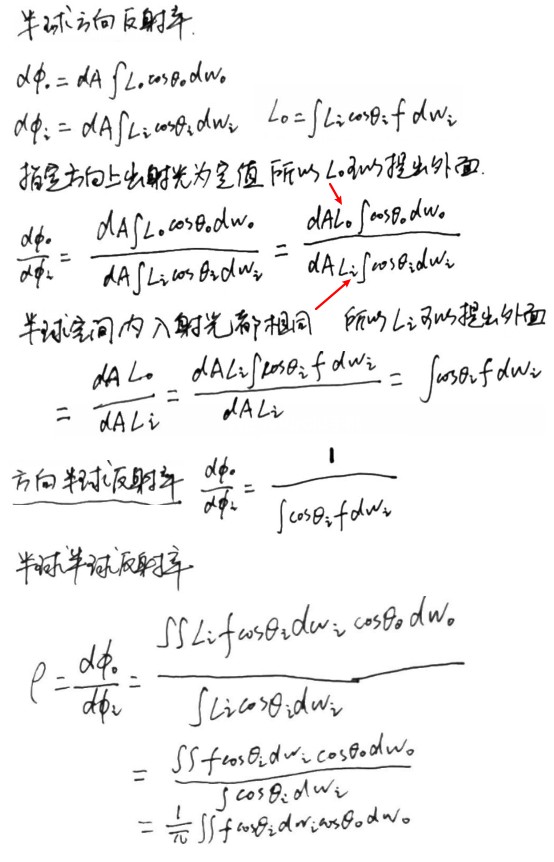 半球方向反射率.
dφₒ = dA ∫Lₒcosθₒdwₒ
dφᵢ = dA∫Lᵢcosθᵢdwᵢ Lₒ=∫Lᵢcosθᵢf dwᵢ
指定方向上出射光为定值 所以Lₒ可以提出外面.
dφₒ/dφᵢ = dA∫Lₒcosθₒdwₒ / dA∫Lᵢcosθᵢdwᵢ = dALₒ∫cosθₒdwₒ / dALᵢ∫cosθᵢdwᵢ
半球空间内入射光都相同 所以Lᵢ可以提出外面
= dALₒ / dALᵢ = dALᵢ∫cosθᵢf dwᵢ / dALᵢ = ∫cosθᵢf dwᵢ
方向半球反射率 dφₒ/dφᵢ = 1 / ∫cosθᵢf dwᵢ
半球半球反射率
ρ = dφₒ/dφᵢ = ∫∫Lᵢf cosθᵢdwᵢ cosθₒdwₒ / ∫Lᵢcosθᵢdwᵢ
= ∫∫f cosθᵢdwᵢ cosθₒdwₒ / ∫cosθᵢdwᵢ
= 1/π ∫∫f cosθᵢdwᵢcosθₒdwₒ